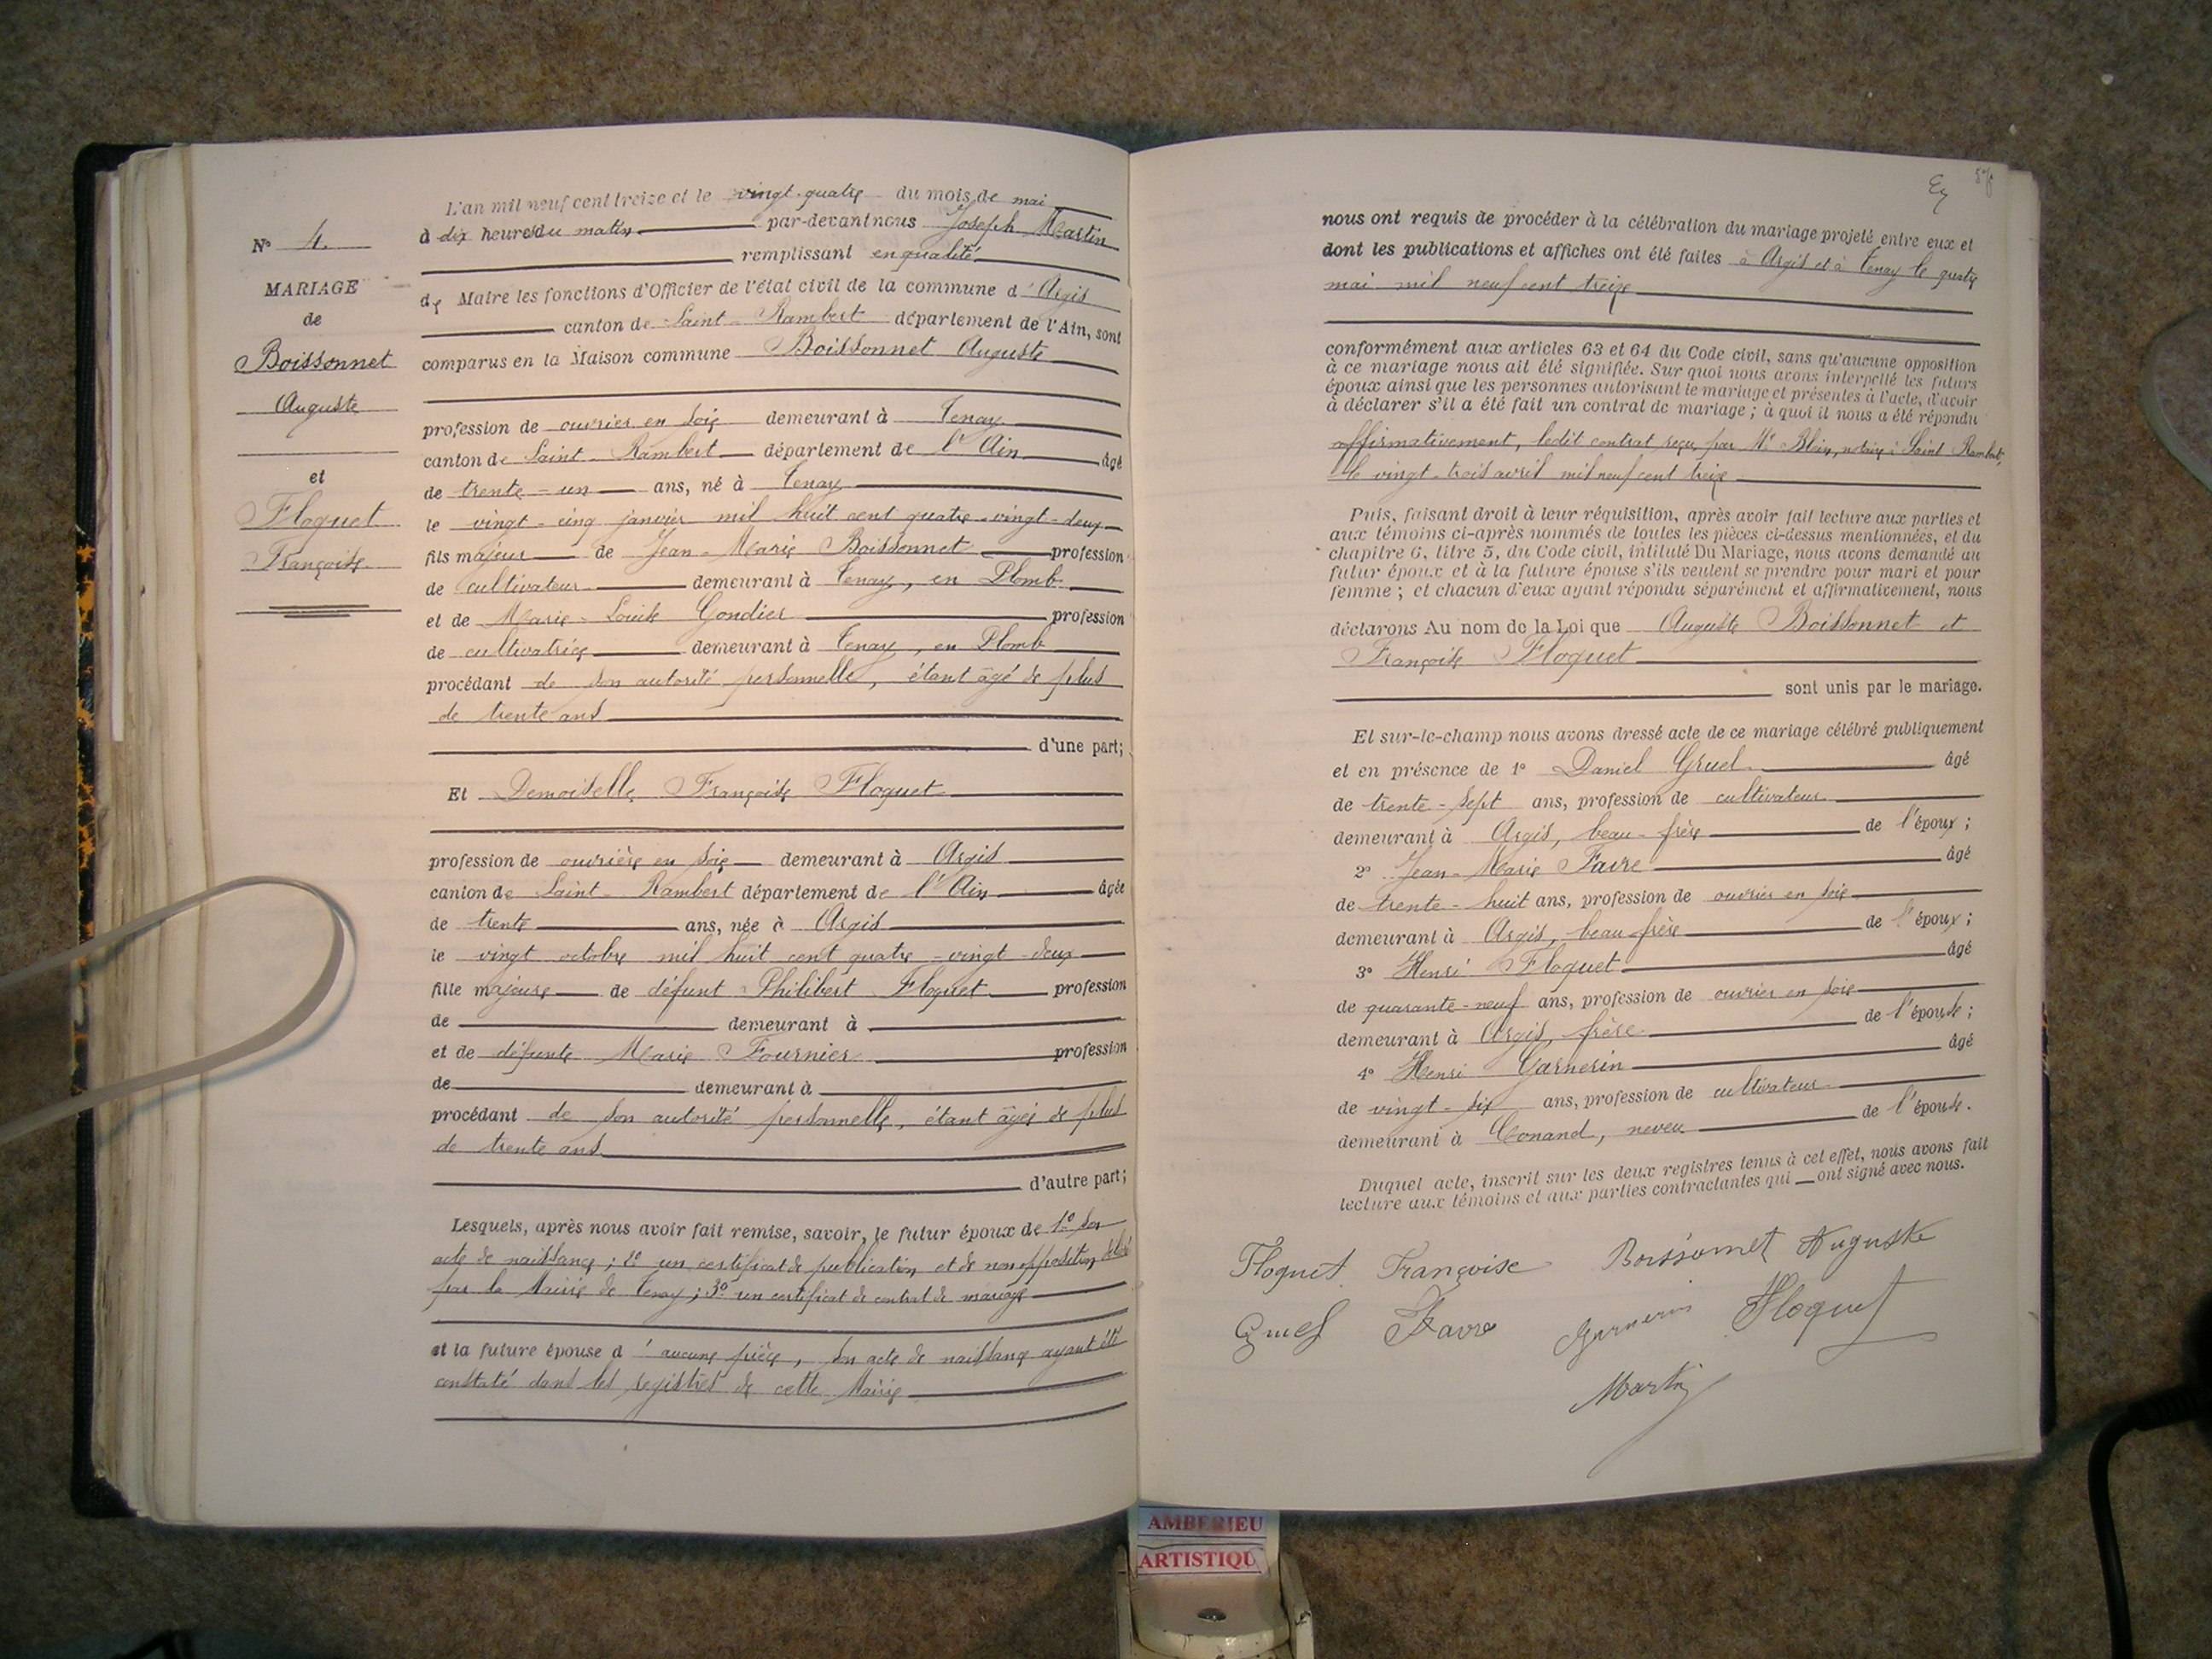 N° 4.
MARIAGE
de
Boissonnet
Auguste
et
Floquet
Françoise
L'an mil neuf cent treize et le vingt-quatre du mois de mai
à dix heures du matin par-devant nous Joseph Martin
remplissant en qualité
de Maire les fonctions d'Officier de l'état civil de la commune d'Argis
canton de Saint-Rambert département de l'Ain, sont
comparus en la Maison commune Boissonnet Auguste
profession de ouvrier en soie demeurant à Tenay
canton de Saint-Rambert département de l'Ain âgé
de trente-un ans, né à Tenay
le vingt-cinq janvier mil huit cent quatre-vingt-deux
fils majeur de Jean-Marie Boissonnet profession
de cultivateur demeurant à Tenay, en Plomb
et de Marie-Louise Gondier profession
de cultivatrice demeurant à Tenay, en Plomb
procédant de son autorité personnelle, étant âgé de plus
de trente ans
d'une part;
Et Demoiselle Françoise Floquet
profession de ouvrière en soie demeurant à Argis
canton de Saint-Rambert département de l'Ain âgée
de trente ans, née à Argis
le vingt octobre mil huit cent quatre-vingt-deux
fille majeure de défunt Philibert Floquet profession
de demeurant à
et de défunte Marie Fournier profession
de demeurant à
procédant de son autorité personnelle, étant âgée de plus
de trente ans
d'autre part;
Lesquels, après nous avoir fait remise, savoir, le futur époux de 1° son
acte de naissance; 2° un certificat de publication et de non opposition délivré
par la Mairie de Tenay; 3° un certificat de contrat de mariage
et la future épouse d'aucune pièce, son acte de naissance ayant été
constaté dans les registres de cette Mairie
nous ont requis de procéder à la célébration du mariage projeté entre eux et
dont les publications et affiches ont été faites à Argis et à Tenay le quatre
mai mil neuf cent treize
conformément aux articles 63 et 64 du Code civil, sans qu'aucune opposition
à ce mariage nous ait été signifiée. Sur quoi nous avons interpellé les futurs
époux ainsi que les personnes autorisant le mariage et présentes à l'acte, d'avoir
à déclarer s'il a été fait un contrat de mariage; à quoi il nous a été répondu
affirmativement, ledit contrat reçu par Me Blain, notaire à Saint Rambert,
le vingt-trois avril mil neuf cent treize
Puis, faisant droit à leur réquisition, après avoir fait lecture aux parties et
aux témoins ci-après nommés de toutes les pièces ci-dessus mentionnées, et du
chapitre 6, titre 5, du Code civil, intitulé Du Mariage, nous avons demandé au
futur époux et à la future épouse s'ils veulent se prendre pour mari et pour
femme; et chacun d'eux ayant répondu séparément et affirmativement, nous
déclarons Au nom de la Loi que Auguste Boissonnet et
Françoise Floquet
sont unis par le mariage.
Et sur-le-champ nous avons dressé acte de ce mariage célébré publiquement
et en présence de 1° Daniel Gruel âgé
de trente-sept ans, profession de cultivateur
demeurant à Argis, beau-frère de l'époux;
2° Jean-Marie Favre âgé
de trente-huit ans, profession de ouvrier en soie
demeurant à Argis, beau frère de l'époux;
3° Henri Floquet âgé
de quarante-neuf ans, profession de ouvrier en soie
demeurant à Argis, frère de l'épouse;
4° Henri Garnerin âgé
de vingt-six ans, profession de cultivateur
demeurant à Conand, neveu de l'épouse.
Duquel acte, inscrit sur les deux registres tenus à cet effet, nous avons fait
lecture aux témoins et aux parties contractantes qui ont signé avec nous.
Floquet Françoise Boissonnet Auguste
Gruel Favre Garnerin Floquet
Martin
AMBERIEU
ARTISTIQU